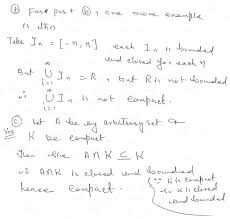 ⓑ For part ⓑ, one more example
is this
Take Iₙ = [-n, n] each Iₙ is bounded
and closed for each n
But ∞⋃i=1 Iₙ = R, but R is not bounded
∴ ∞⋃i=1 Iₙ is not compact.
ⓒ Let A be any arbitrary set &
Yes K be compact
Then since A∩K ⊆ K
∴ A∩K is closed and bounded
hence compact. (∵ K is compact
so K is closed
and bounded